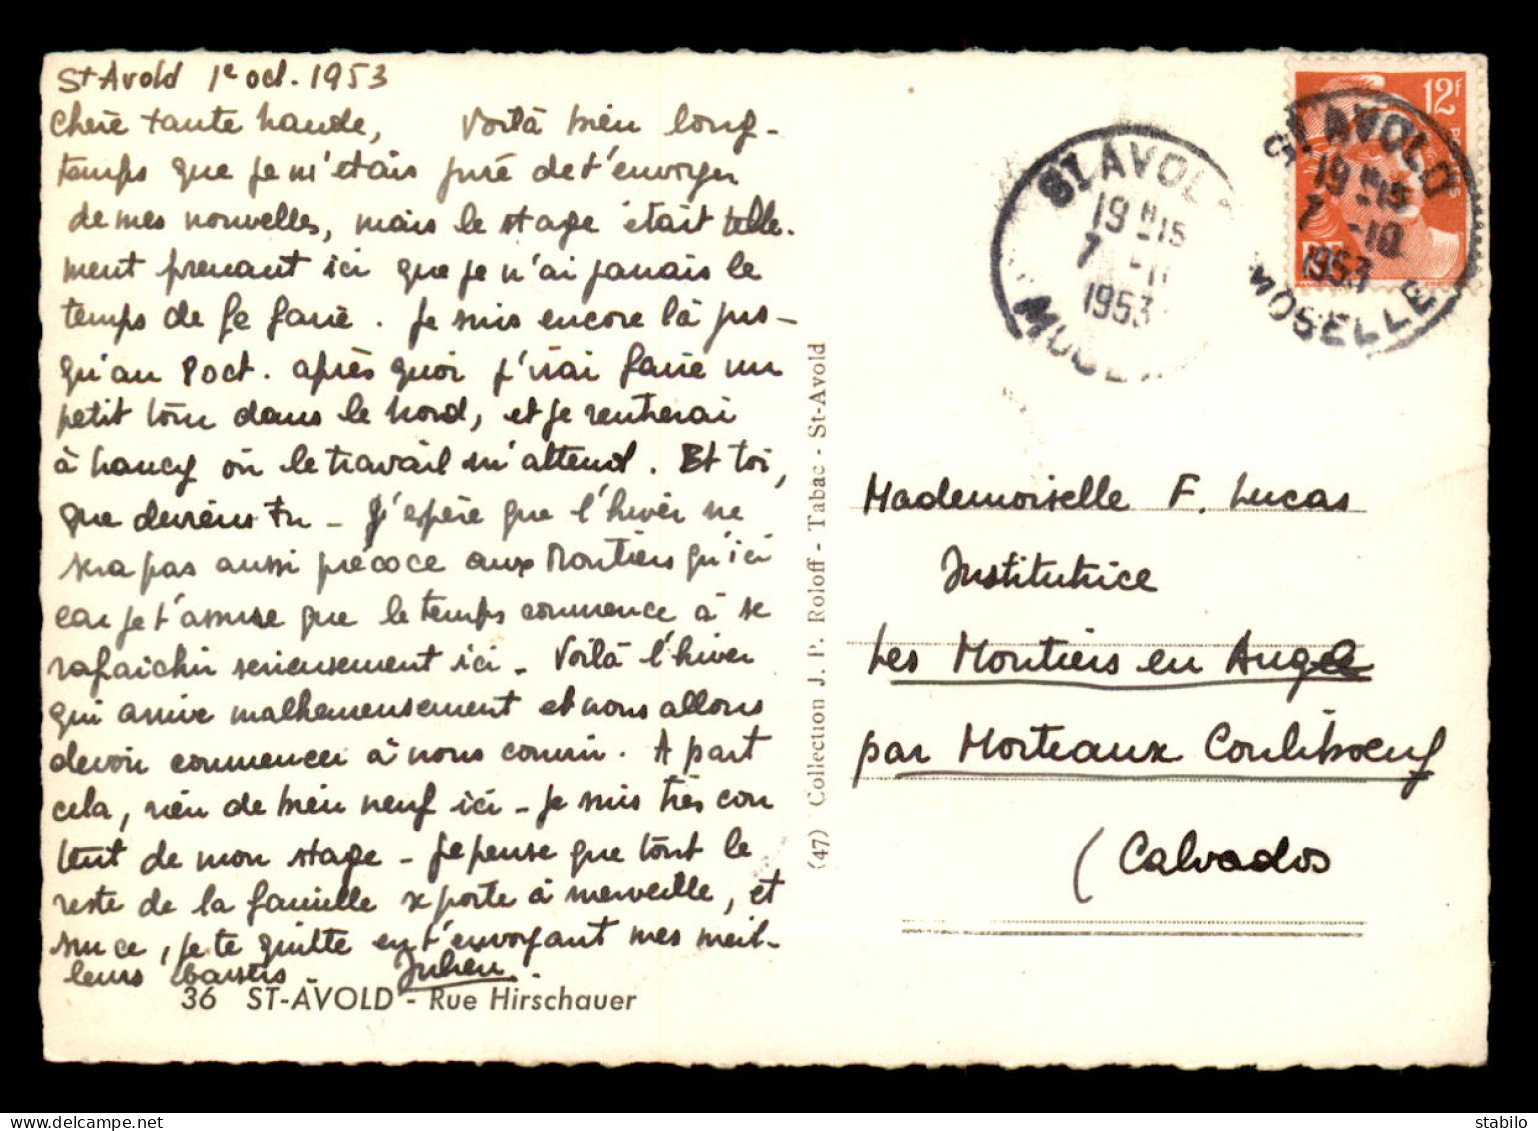 St Avold 1e oct. 1953
Chère tante Naude, Voilà bien long-
temps que je m'étais juré de t'envoyer
de mes nouvelles, mais le stage était telle-
ment prenant ici que je n'ai jamais le
temps de le faire. Je suis encore là jus-
qu'au 8 oct. après quoi j'irai faire un
petit tour dans le Nord, et je rentrerai
à Nancy où le travail m'attend. Et toi,
que deviens tu - J'espère que l'hiver ne
sera pas aussi précoce aux Montiers qu'ici
car je t'assure que le temps commence à se
rafraichir serieusement ici - Voilà l'hiver
qui arrive malheureusement et nous allons
devoir commencer à nous couvrir. A part
cela, rien de bien neuf ici - Je suis très con
tent de mon stage - Je pense que tout le
reste de la famille se porte à merveille, et
sur ce, je te quitte en t'envoyant mes meil-
leurs baisers. Julien.
36 ST-AVOLD - Rue Hirschauer
(47) Collection J. P. Roloff - Tabac - St-Avold
ST AVOLD
19 H 15
7 -10
1953
MOSELLE
ST AVOLD
19 H 15
7 -10
1953
MOSELLE
12f
POSTES
RF
Mademoiselle F. Lucas
Institutrice
Les Montiers en Auge
par Morteaux Coulibœuf
(Calvados
delcampe.net
stabilo